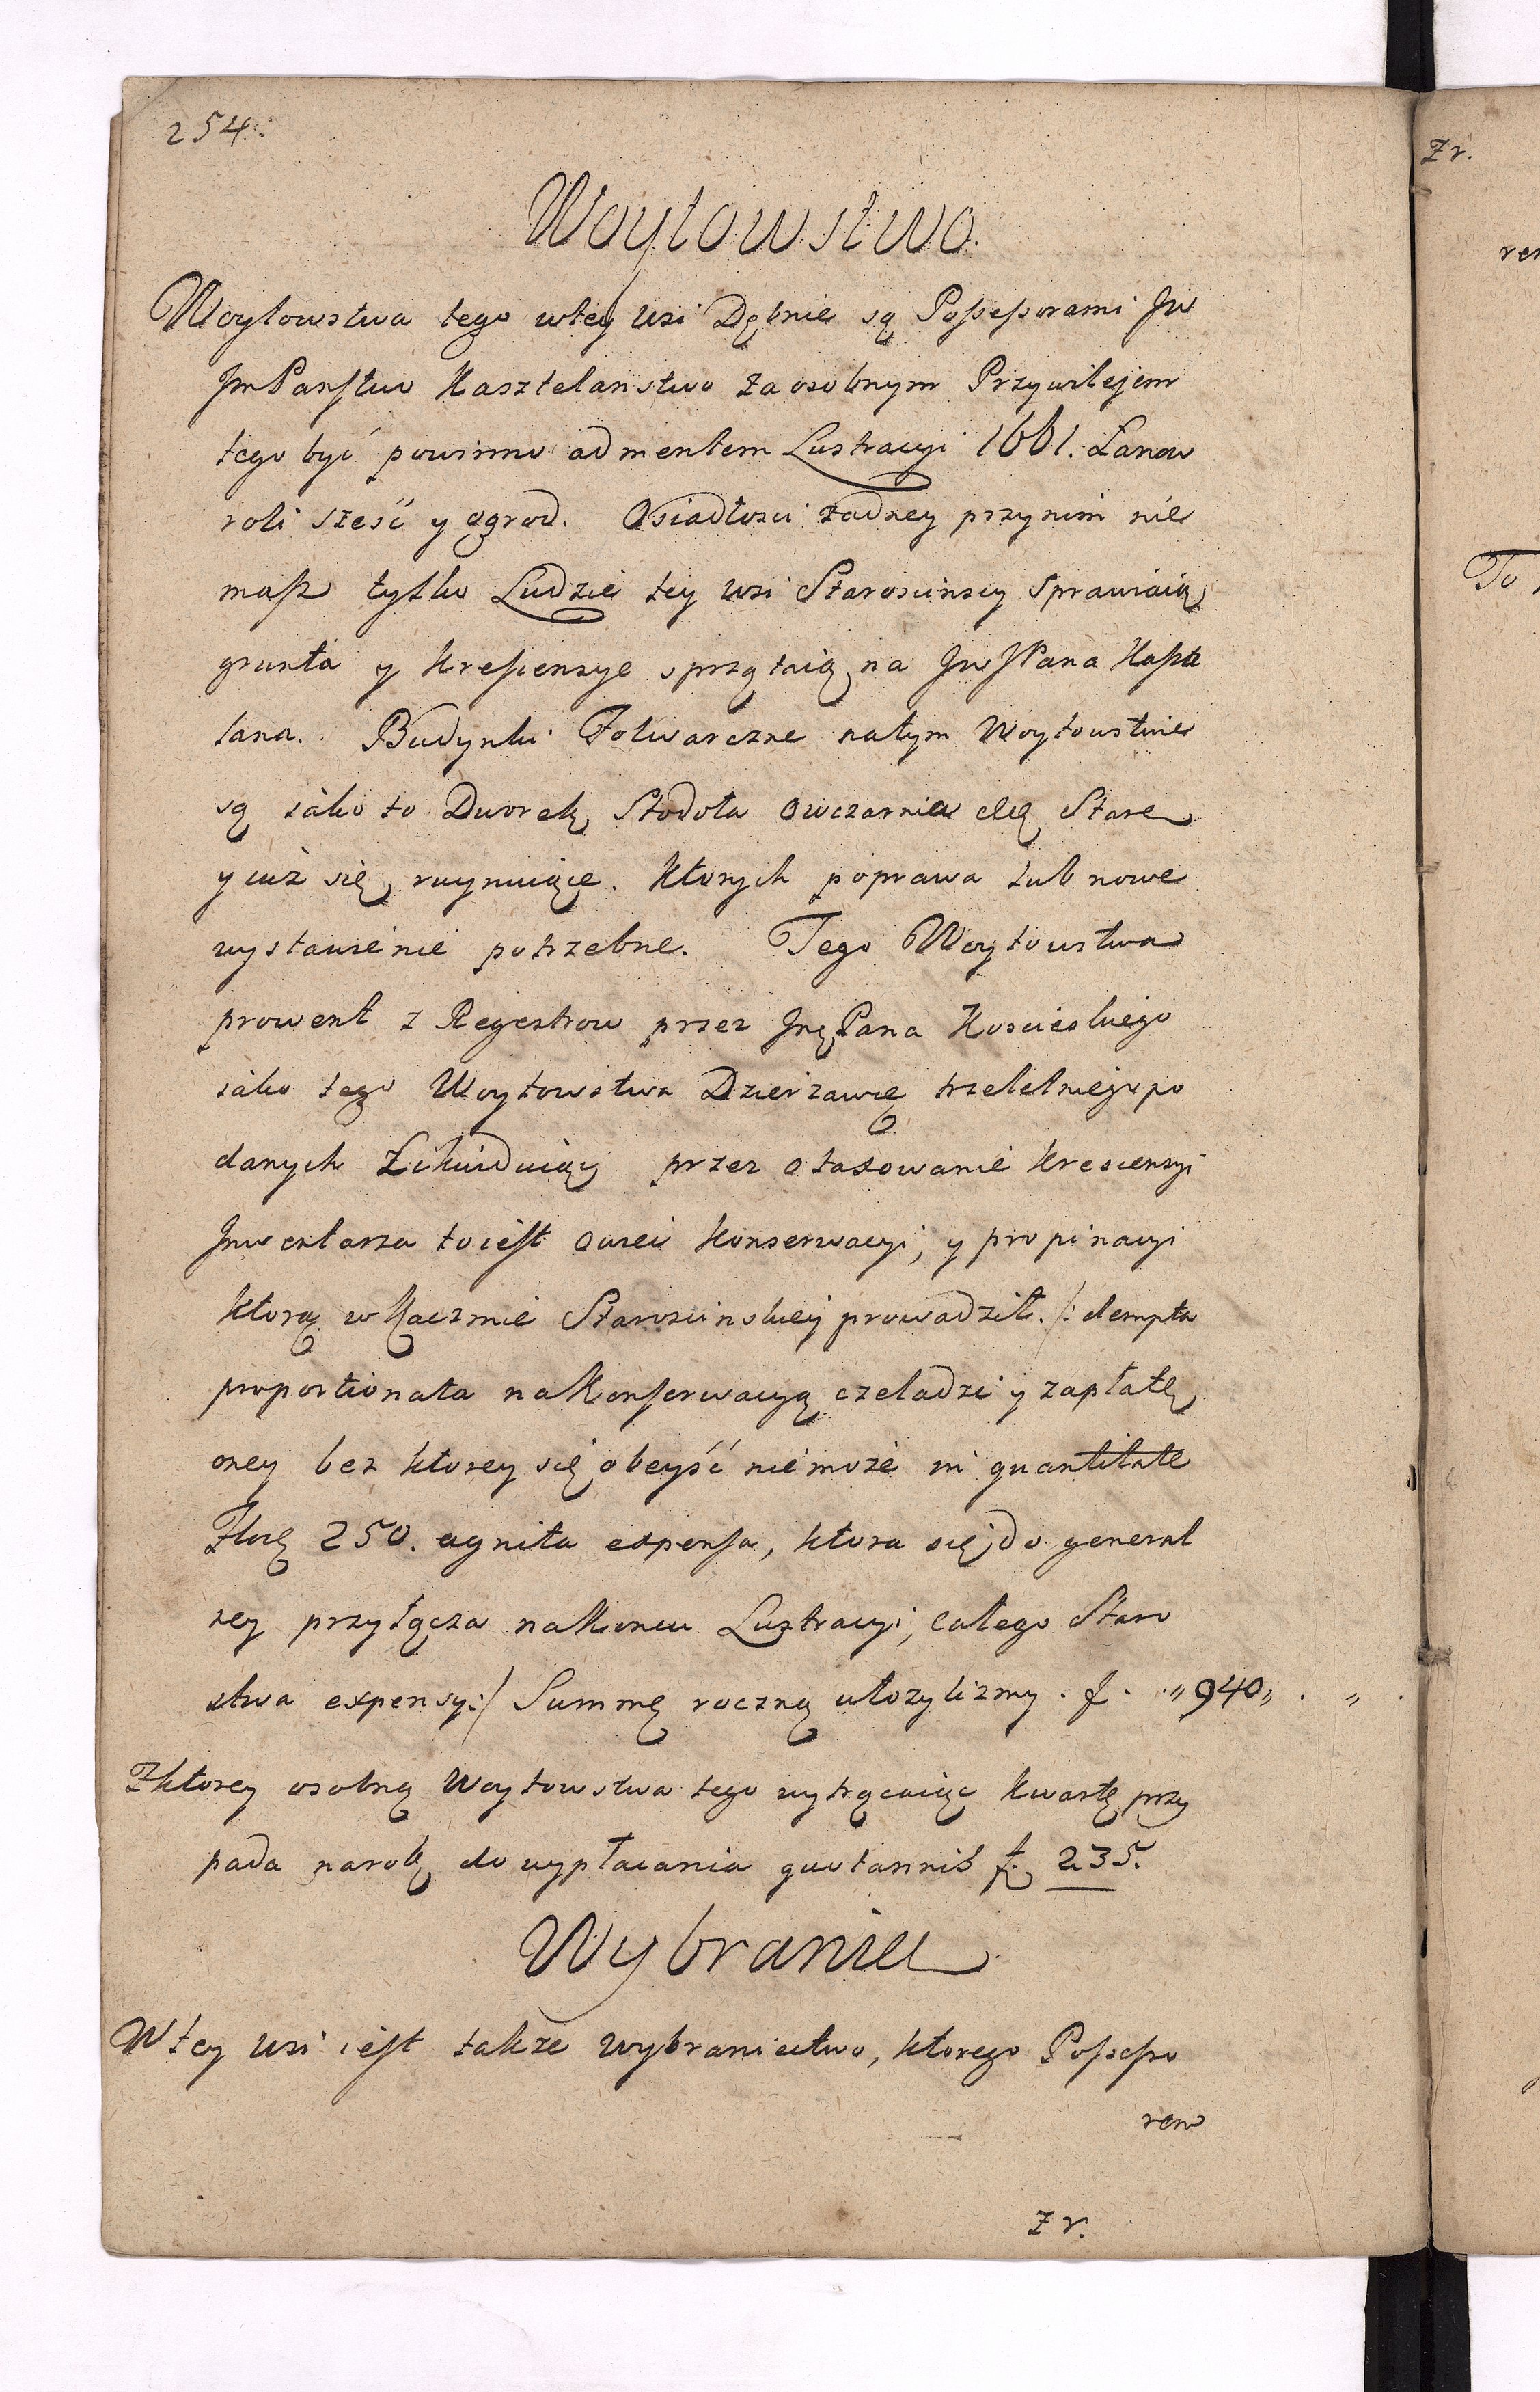 254.
Woytowstwo.
Woytowstwa tego wtey wsi Dębnie są Possessorami Jw
Jm Panstwo Kasztelanstwo za osobnym Przywilejem
tego być powinno ad mentem Lustracyi 1661. Łanow
roli sześć y ogrod. Osiadłosci żadney przynim nie
masz tylko Ludzie tey wsi Staroscinscy sprawiaią
grunta y krescensye sprzątaią na Jw JPana Kaszte
lana. Budynki Folwarczne natym Woytowstwie
są iako to Dworek, Stodoła owczarnia ale stare
y iuż się ruynuiące. Ktorych poprawa lub nowe
wystawienie potrzebne. Tego Woytowstwa
prowent z Regestrow przez Jmę Pana Koscieskiego
iako tego Woytowstwa Dzierżawcę trzeletniego po
danych Likwiduiąc przez otaxowanie krescensyi
Jnwentarza toiest owiec konserwacyi, y propinacyi
ktorą w Karczmie Staroscinskiey prowadził. /: dempta
proportionata na Konserwacyą czeladzi y zapłatę
oney bez ktorey się obeyść niemoże in quantitate
Złotę 250. agnita expensa, ktora się do general
ney przyłącza nakoncu Lustracyi, całego Staro
stwa expensy :/ Summę roczną ułożylizmy . f. . „ 940 „ . „ .
Zktorey osobną Woytowstwa tego wytrącaiąc kwartę przy
pada narok do wypłacania quotannis f. 235.
Wybraniec
Wtey wsi iest takze wybraniectwo, ktorego Possesso
rem
Zr.
Zr.
rem
To